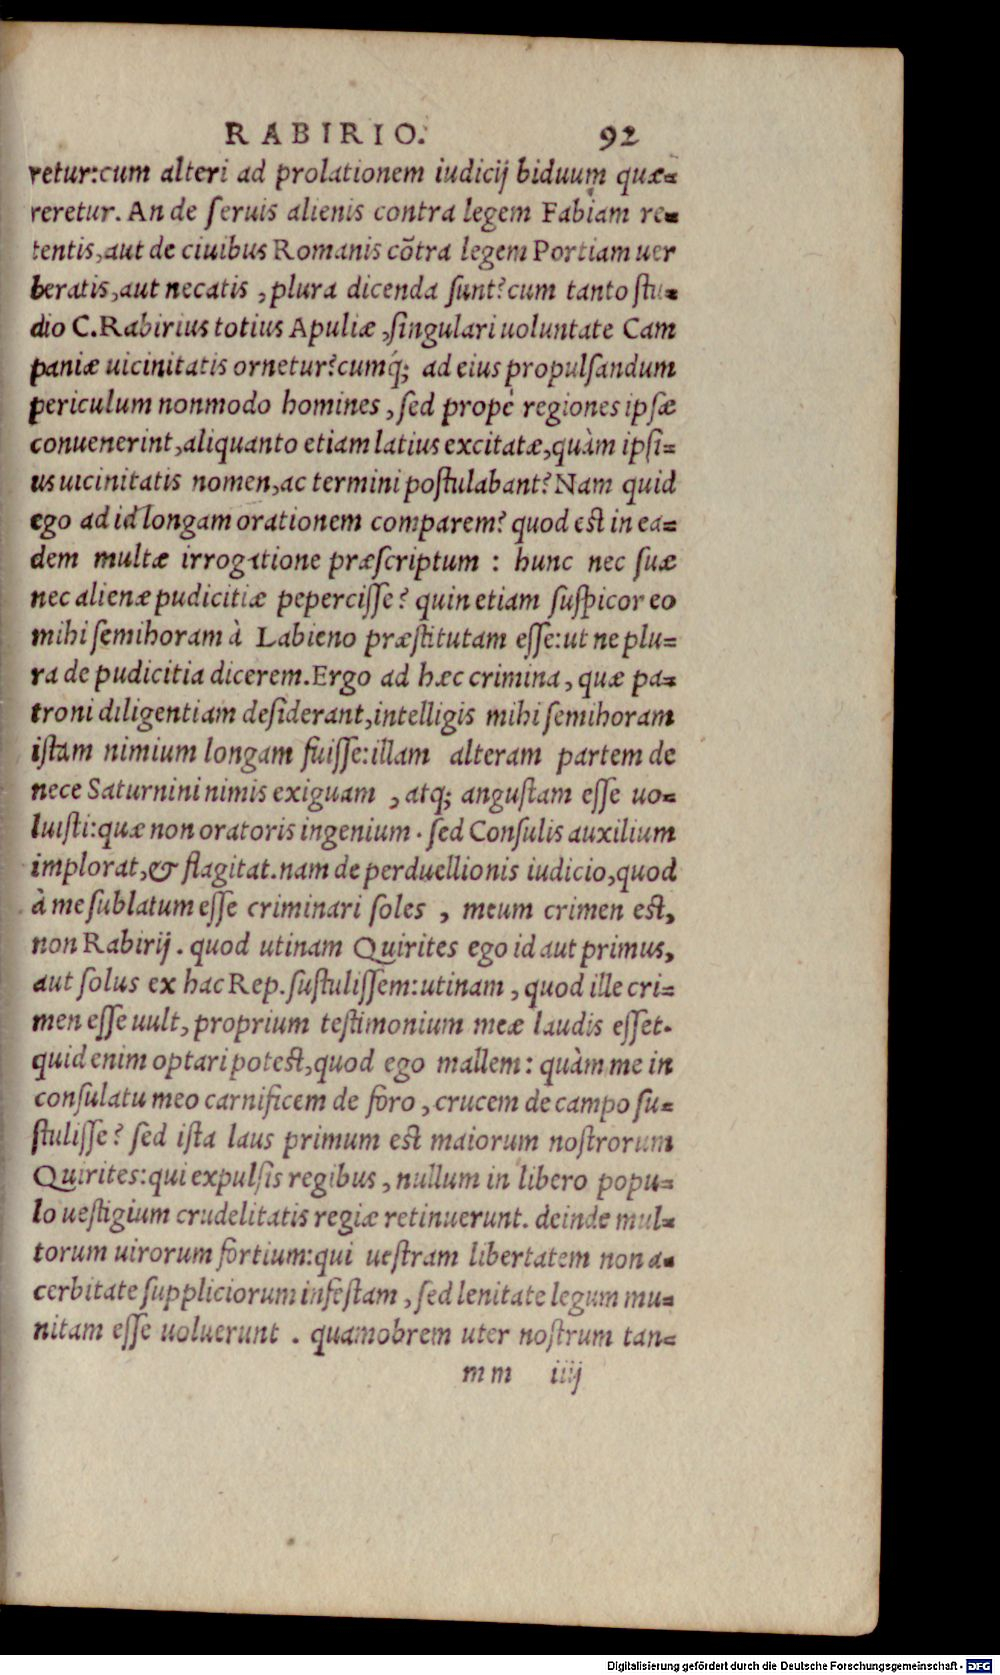 RABIRIO. 92
retur:cum alteri ad prolationem iudicij biduum quæ-
reretur. An de ſeruis alienis contra legem Fabiam re-
tentis, aut de ciuibus Romanis cõtra legem Portiam uer
beratis, aut necatis , plura dicenda ſunt? cum tanto ſtu-
dio C. Rabirius totius Apuliæ , ſingulari uoluntate Cam
paniæ uicinitatis ornetur? cumq́; ad eius propulſandum
periculum nonmodo homines , ſed propè regiones ipſæ
conuenerint, aliquanto etiam latius excitatæ, quàm ipſi-
us uicinitatis nomen, ac termini poſtulabant? Nam quid
ego ad id longam orationem comparem? quod eſt in ea-
dem multæ irrogatione præſcriptum : hunc nec ſuæ
nec alienæ pudicitiæ peperciſſe? quin etiam ſuſpicor eo
mihi ſemihoram à Labieno præſtitutam eſſe: ut ne plu-
ra de pudicitia dicerem. Ergo ad hæc crimina, quæ pa-
troni diligentiam deſiderant, intelligis mihi ſemihoram
iſtam nimium longam fuiſſe: illam alteram partem de
nece Saturnini nimis exiguam , atq; anguſtam eſſe uo-
luiſti: quæ non oratoris ingenium . ſed Conſulis auxilium
implorat, & flagitat. nam de perduellionis iudicio, quod
à me ſublatum eſſe criminari ſoles , meum crimen eſt,
non Rabirij . quod utinam Quirites ego id aut primus,
aut ſolus ex hac Rep. ſuſtuliſſem: utinam , quod ille cri-
men eſſe uult, proprium teſtimonium meæ laudis eſſet.
quid enim optari poteſt, quod ego mallem: quàm me in
conſulatu meo carnificem de foro , crucem de campo ſu-
ſtuliſſe? ſed iſta laus primum eſt maiorum noſtrorum
Quirites: qui expulſis regibus , nullum in libero popu-
lo ueſtigium crudelitatis regiæ retinuerunt. deinde mul-
torum uirorum fortium: qui ueſtram libertatem non a-
cerbitate ſuppliciorum infeſtam , ſed lenitate legum mu-
nitam eſſe uoluerunt . quamobrem uter noſtrum tan-
mm iiij
Digitalisierung gefördert durch die Deutsche Forschungsgemeinschaft - DFG